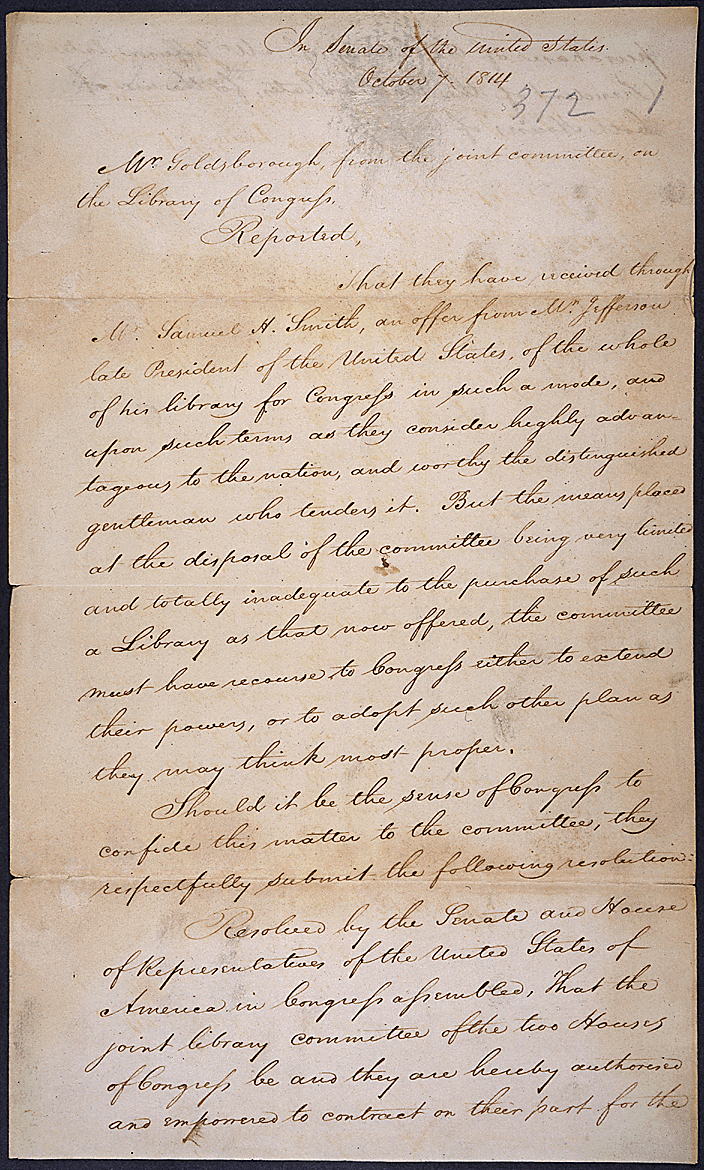 In Senate of the United States.
October 7. 1814
372 1
Mr. Goldsborough, from the joint committee, on
the Library of Congress,
Reported,
That they have received through
Mr. Samuel H. Smith, an offer from Mr. Jefferson
late President of the United States, of the whole
of his library for Congress in such a mode, and
upon such terms as they consider highly advan-
tageous to the nation, and worthy the distinguished
gentleman who tenders it. But the means placed
at the disposal of the committee being very limited
and totally inadequate to the purchase of such
a Library as that now offered, the committee
must have recourse to Congress either to extend
their powers, or to adopt such other plan as
they may think most proper.
Should it be the sense of Congress to
confide this matter to the committee, they
respectfully submit the following resolution:
Resolved by the Senate and House
of Representatives of the United States of
America in Congress assembled, That the
joint library committee of the two Houses
of Congress be and they are hereby authorised
and empowered to contract on their part for the